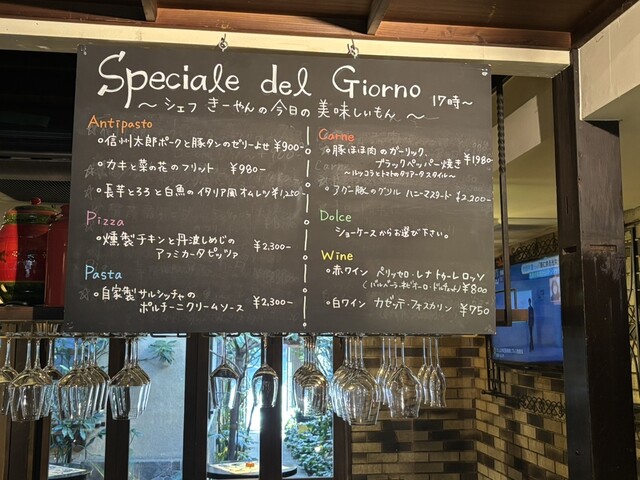 Speciale del Giorno 17時〜
〜 シェフ きーやんの今日の美味しいもん 〜
Antipasto
信州太郎ポークと豚タンのゼリーよせ ¥900-
カキと菜の花のフリット ¥980-
長芋とろろと白魚のイタリア風オムレツ ¥1,250-
Pizza
燻製チキンと丹波しめじの
アフミカータピッツァ ¥2,300-
Pasta
自家製サルシッチャの
ポルチーニクリームソース ¥2,300-
Carne
豚ほほ肉のガーリック
ブラックペッパー焼き ¥1980-
〜ルッコラとトマトのタリアータスタイル〜
豚のグリル ハニーマスタード ¥2,200-
Dolce
ショーケースからお選び下さい。
Wine
赤ワイン ペリッセロ・レナトゥーレロッソ
(バルベーラ・ネビオーロ・ドルチェット) ¥800
白ワイン カゼッテ・フォスカリン ¥750